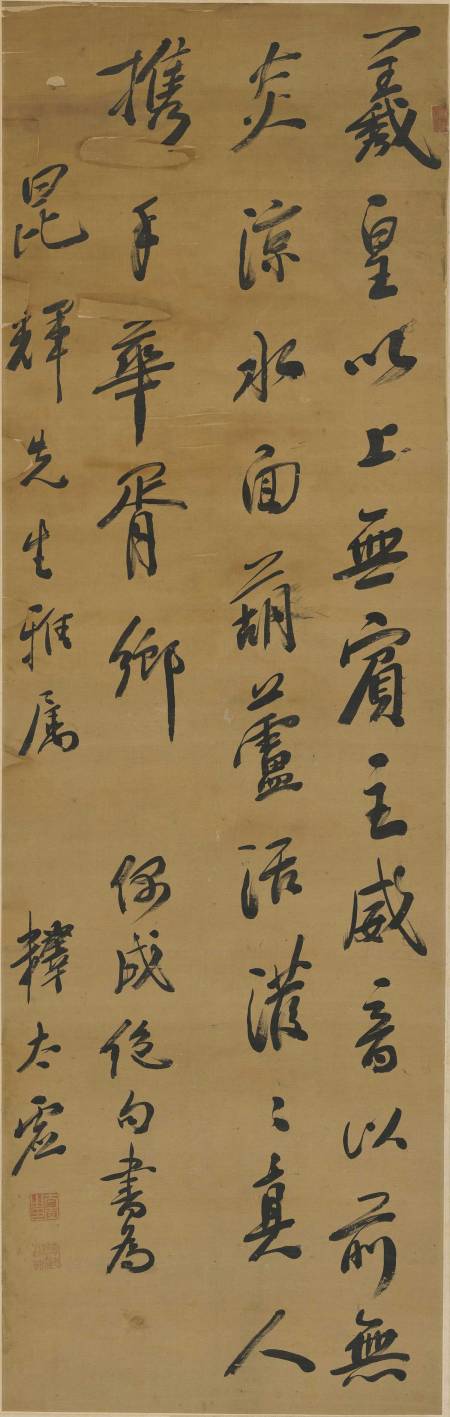 羲皇以上無賓主威音以前無
炎涼水面葫蘆活潑〻真人
携手華胥鄉　偶成绝句書為
昆輝先生雅属　釋太虚